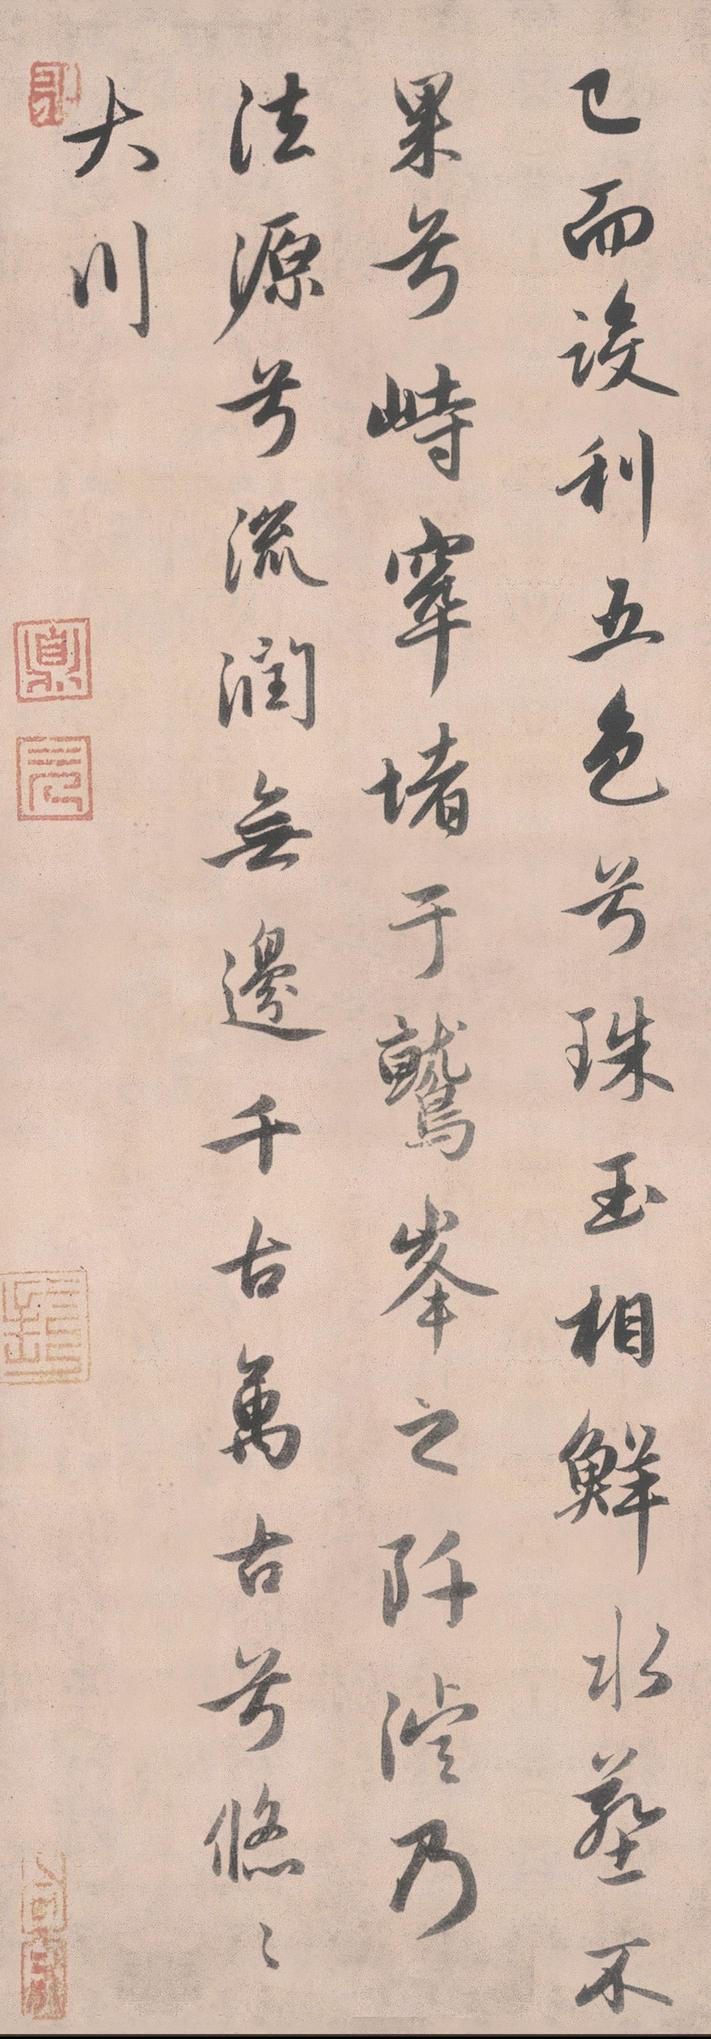 已而設利五色兮珠玉相鮮水葬不
果兮峙窣堵于鷲峯之阡濬乃
法源兮流潤無邊千古萬古兮悠〻
大川